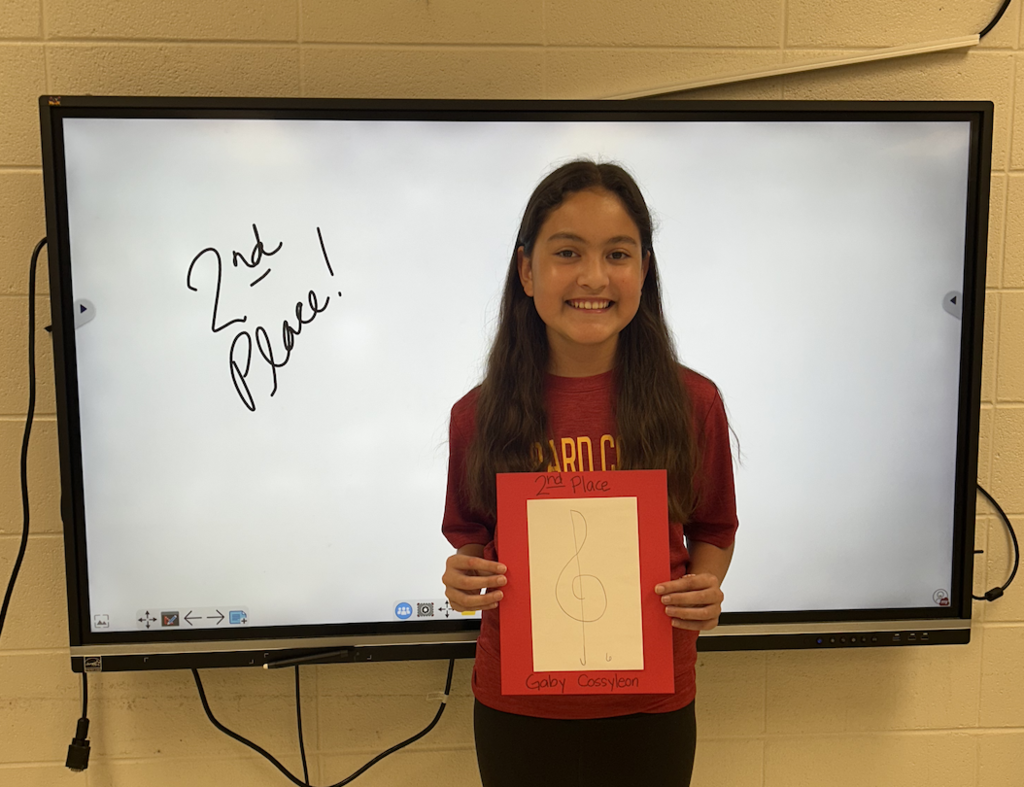 2nd
Place!
ARD C
2nd Place
Gaby Cossyleon